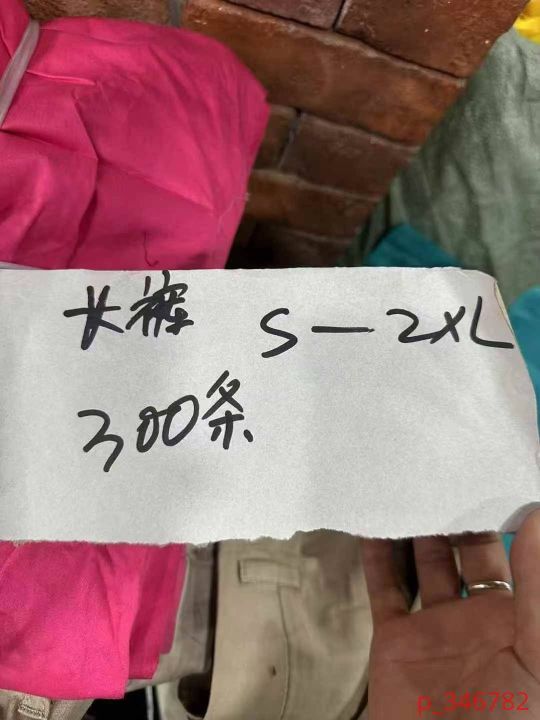 长裤 S—2XL
300条
p_346782